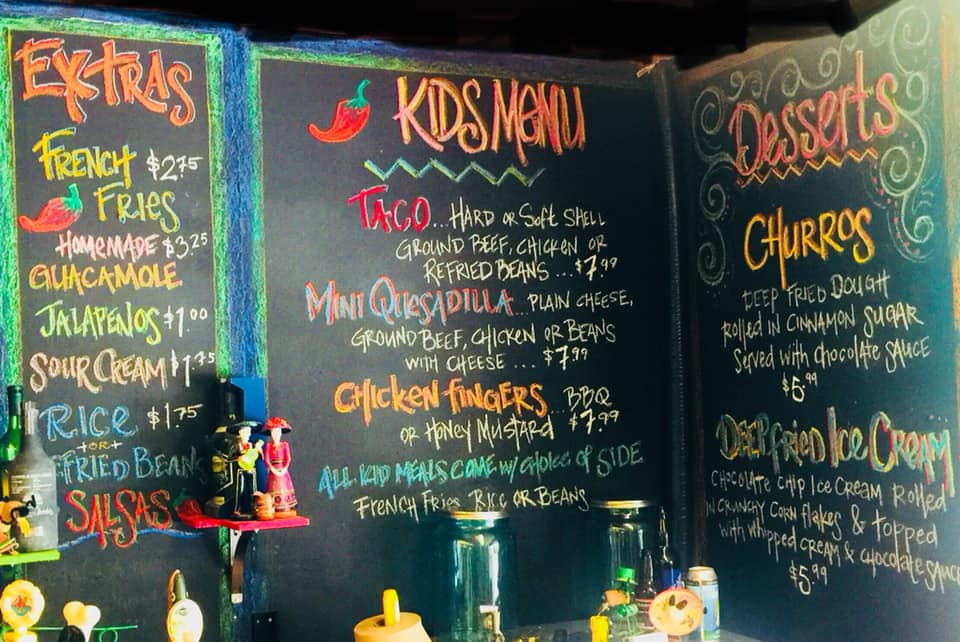 Extras
French $2.75
Fries
Homemade $3.25
Guacamole
Jalapenos $1.00
Sour Cream $1.75
Rice $1.75
-or-
Salsas
Kids Menu
Taco...Hard or Soft Shell
Ground Beef, Chicken or
Refried Beans...$7.99
Mini Quesadilla...Plain Cheese,
Ground Beef, Chicken or Beans
with Cheese...$7.99
Chicken Fingers...BBQ
or Honey Mustard $7.99
All Kid Meals Come w/ Choice of Side
French Fries Rice or Beans
Desserts
Churros
Deep Fried Dough
Rolled in Cinnamon Sugar
Served with Chocolate Sauce
$5.99
Deep Fried Ice Cream
Chocolate Chip Ice Cream Rolled
in Crunchy Corn Flakes & topped
with Whipped Cream & Chocolate Sauce
$5.99